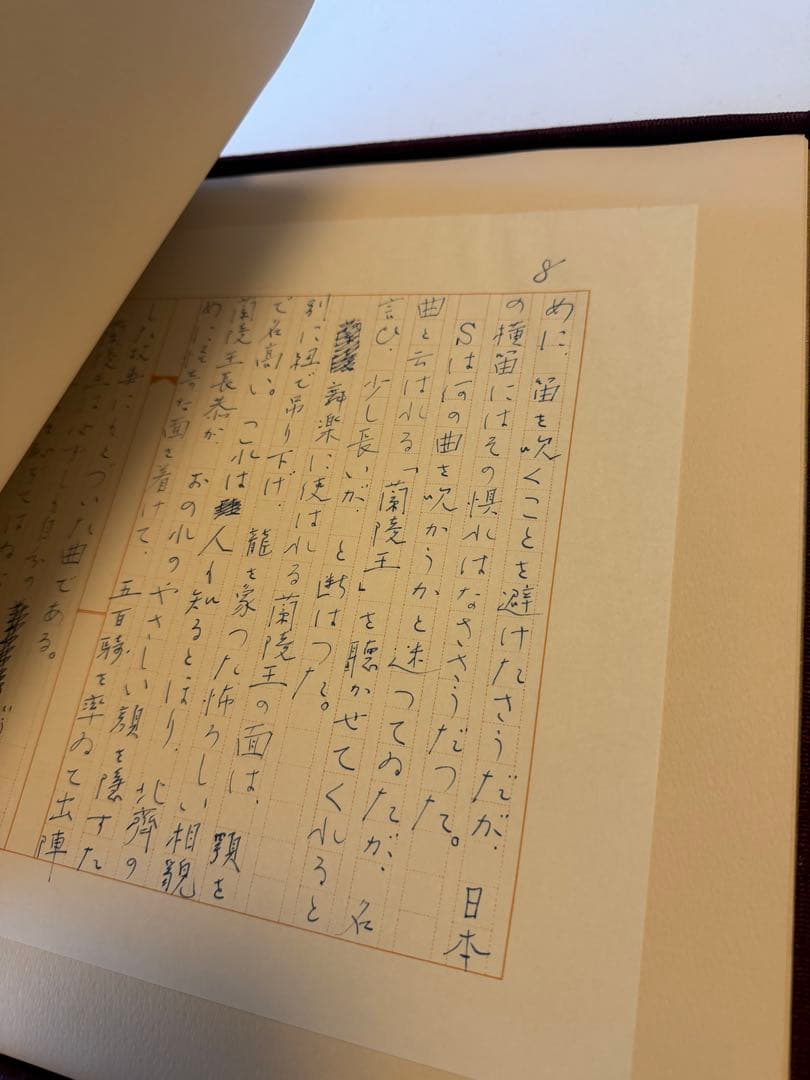 8
めに、笛を吹くことを避けたさうだが、日本
の横笛にはその惧れはなささうだつた。
Sは何の曲を吹かうかと迷つてゐたが、名
曲と云はれる「蘭陵王」を聴かせてくれると
言ひ、少し長いが、と断はつた。
舞楽に使はれる蘭陵王の面は、顎を
別に紐で吊り下げ、龍を象つた怖ろしい相貌
で名高い。これは人も知るとほり、北齊の
蘭陵王長恭が、おのれのやさしい顔を隠すた
めに怪奇な面を着けて、五百騎を率ゐて出陣
した故事にもとづいた曲である。
蘭陵王は必ずしも自分の